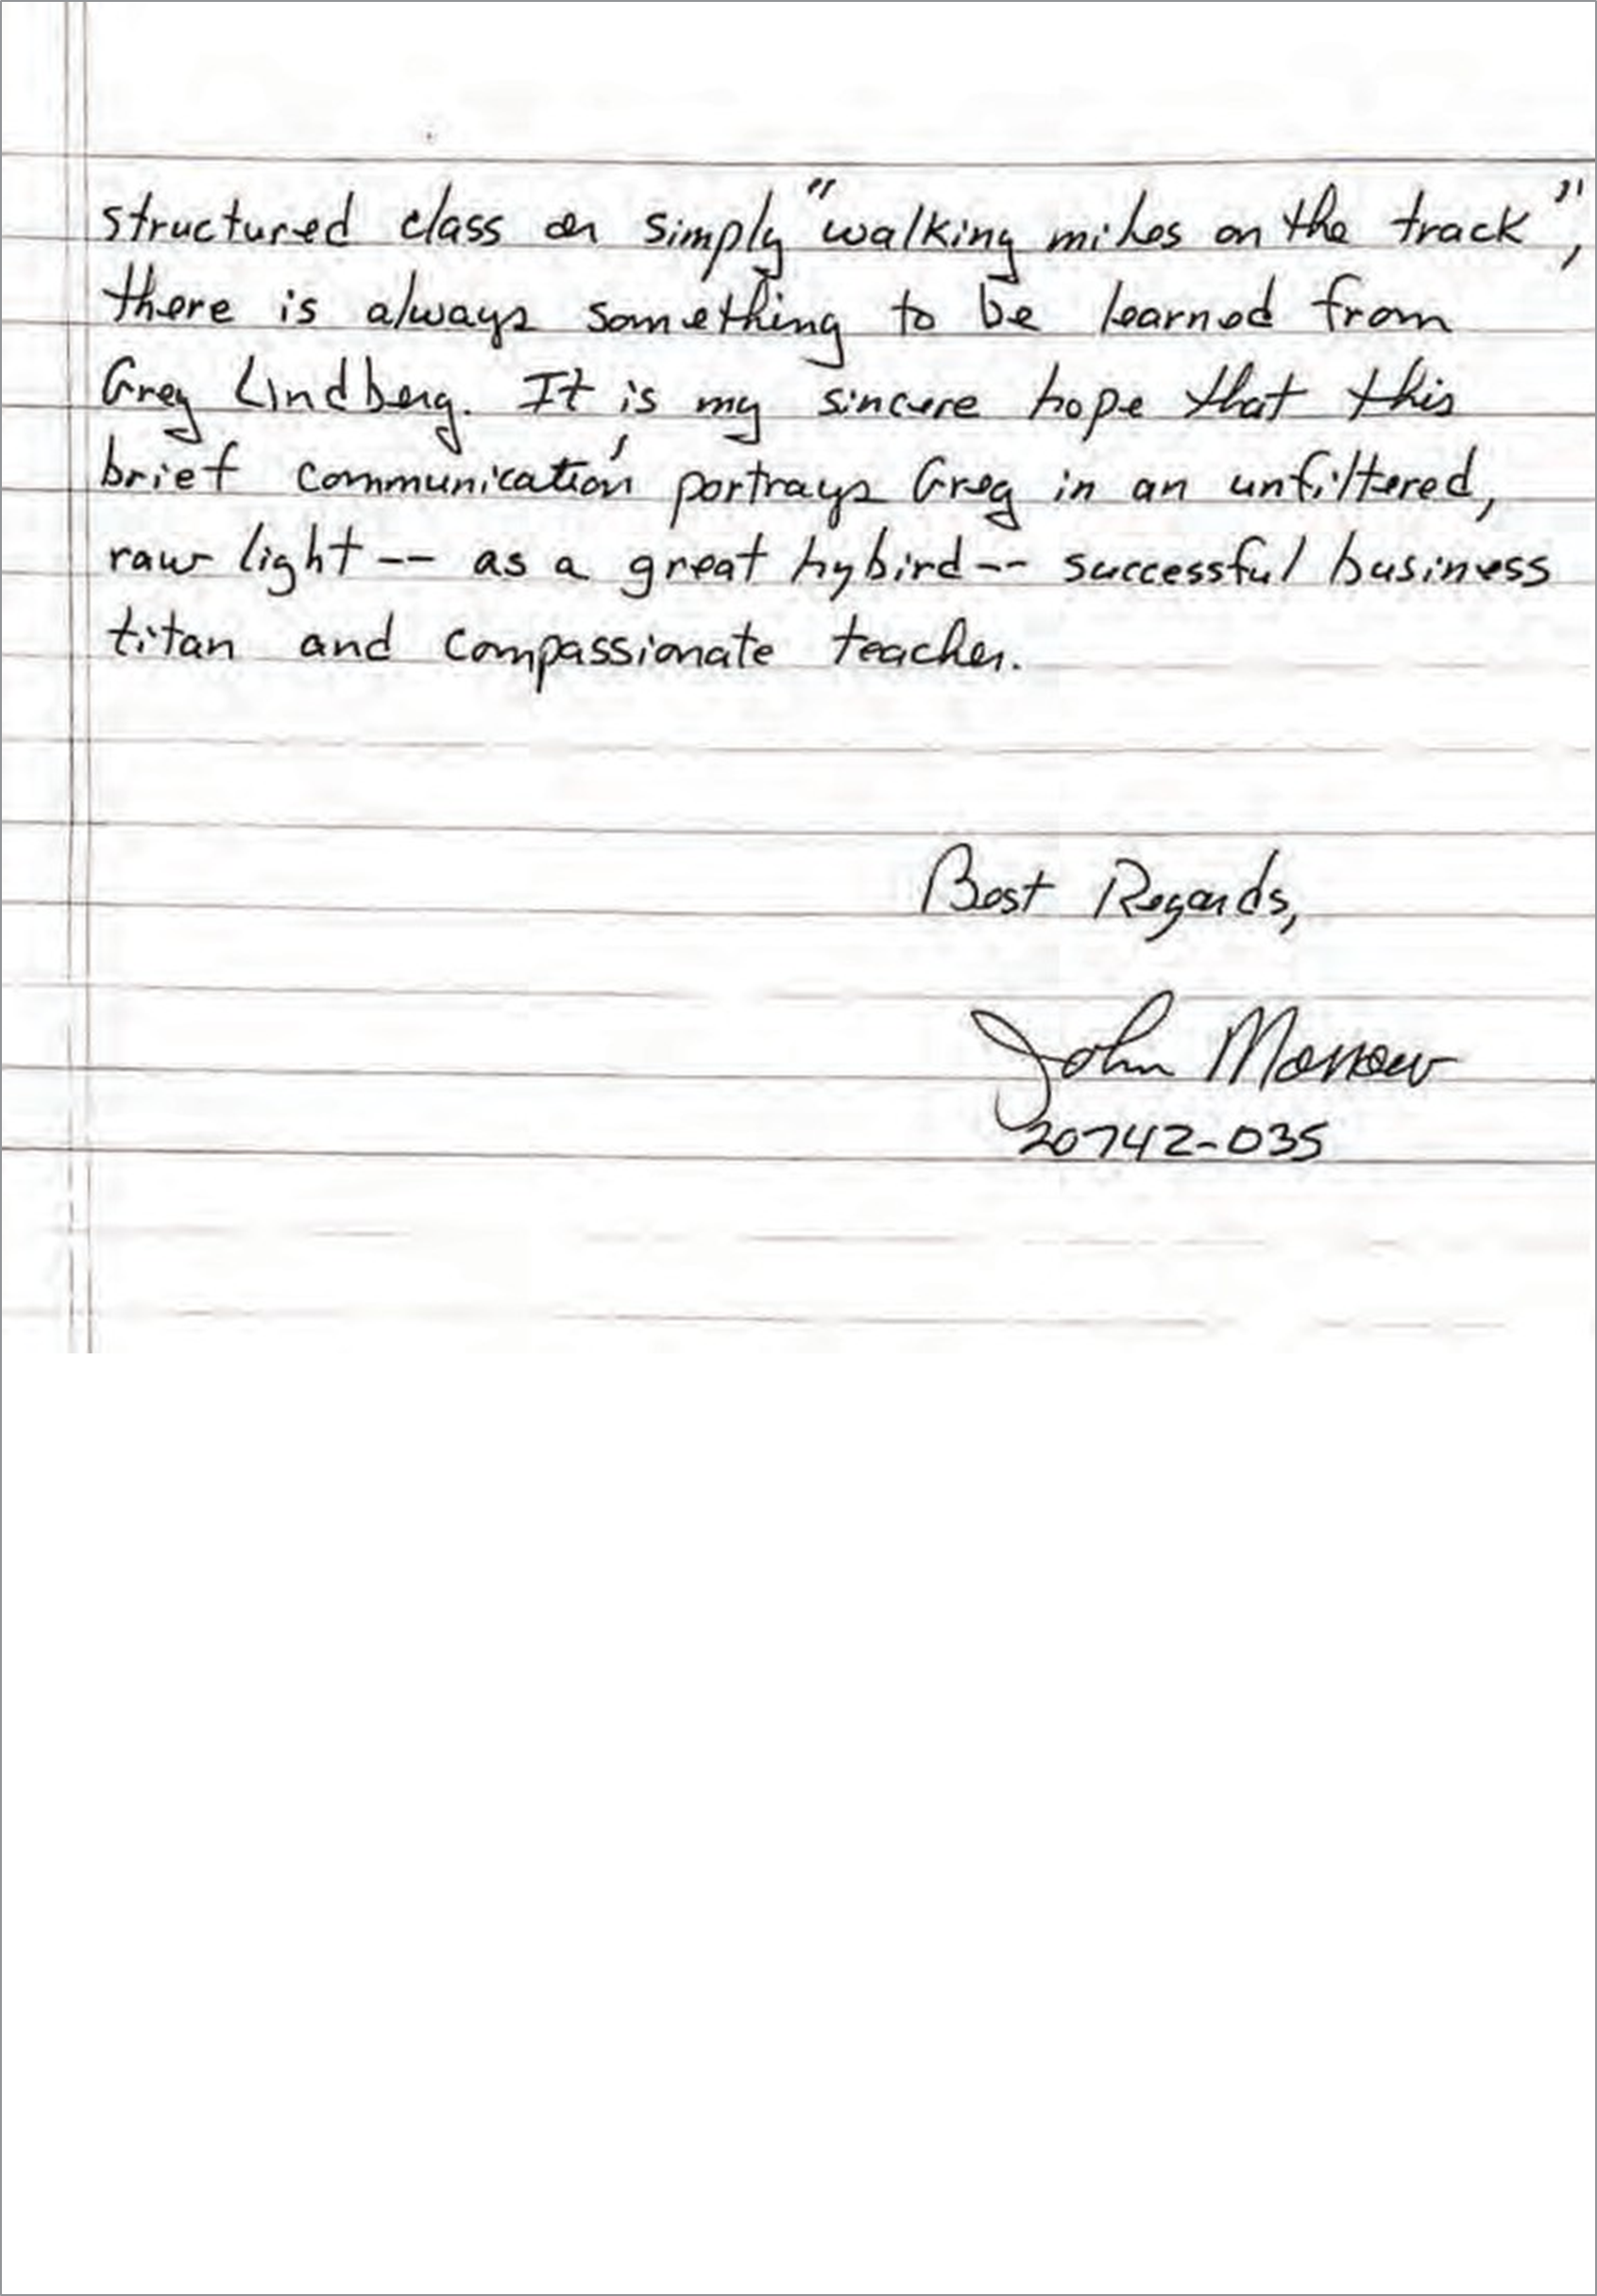 structured class or simply "walking miles on the track",
there is always something to be learned from
Greg Lindberg. It is my sincere hope that this
brief communication portrays Greg in an unfiltered,
raw light -- as a great hybird -- successful business
titan and compassionate teacher.
Best Regards,
John Morrow
20742-035